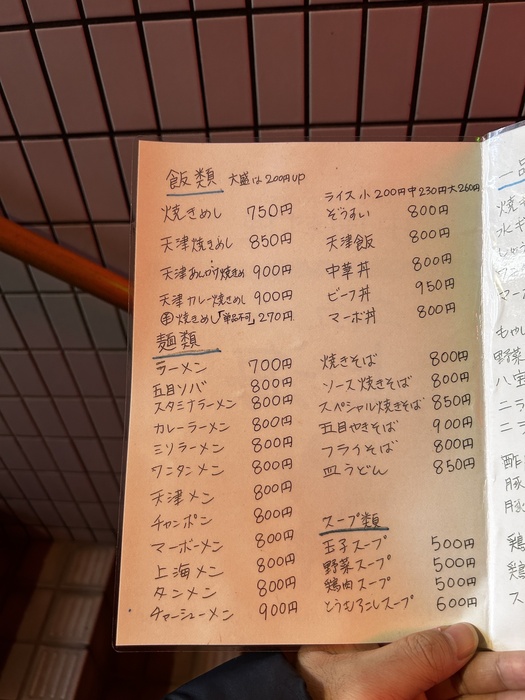 飯類 大盛は200円UP
焼きめし 750円
天津焼きめし 850円
天津あんかけ焼きめし 900円
天津カレー焼きめし 900円
焼きめし「単品不可」270円
ライス 小200円 中230円 大260円
ぞうすい 800円
天津飯 800円
中華丼 800円
ビーフ丼 950円
マーボ丼 800円
麺類
ラーメン 700円
五目ソバ 800円
スタミナラーメン 800円
カレーラーメン 800円
ミソラーメン 800円
ワンタンメン 800円
天津メン 800円
チャンポン 800円
マーボーメン 800円
上海メン 800円
タンメン 800円
チャーシューメン 900円
焼きそば 800円
ソース焼きそば 800円
スペシャル焼きそば 850円
五目やきそば 900円
フライそば 800円
皿うどん 850円
スープ類
玉子スープ 500円
野菜スープ 500円
鶏肉スープ 500円
とうもろこしスープ 600円
一品
焼
水ギ
マー
もやし
野菜
八宝
ニラ
ニラ
酢
豚
豚
鶏
鶏
ス